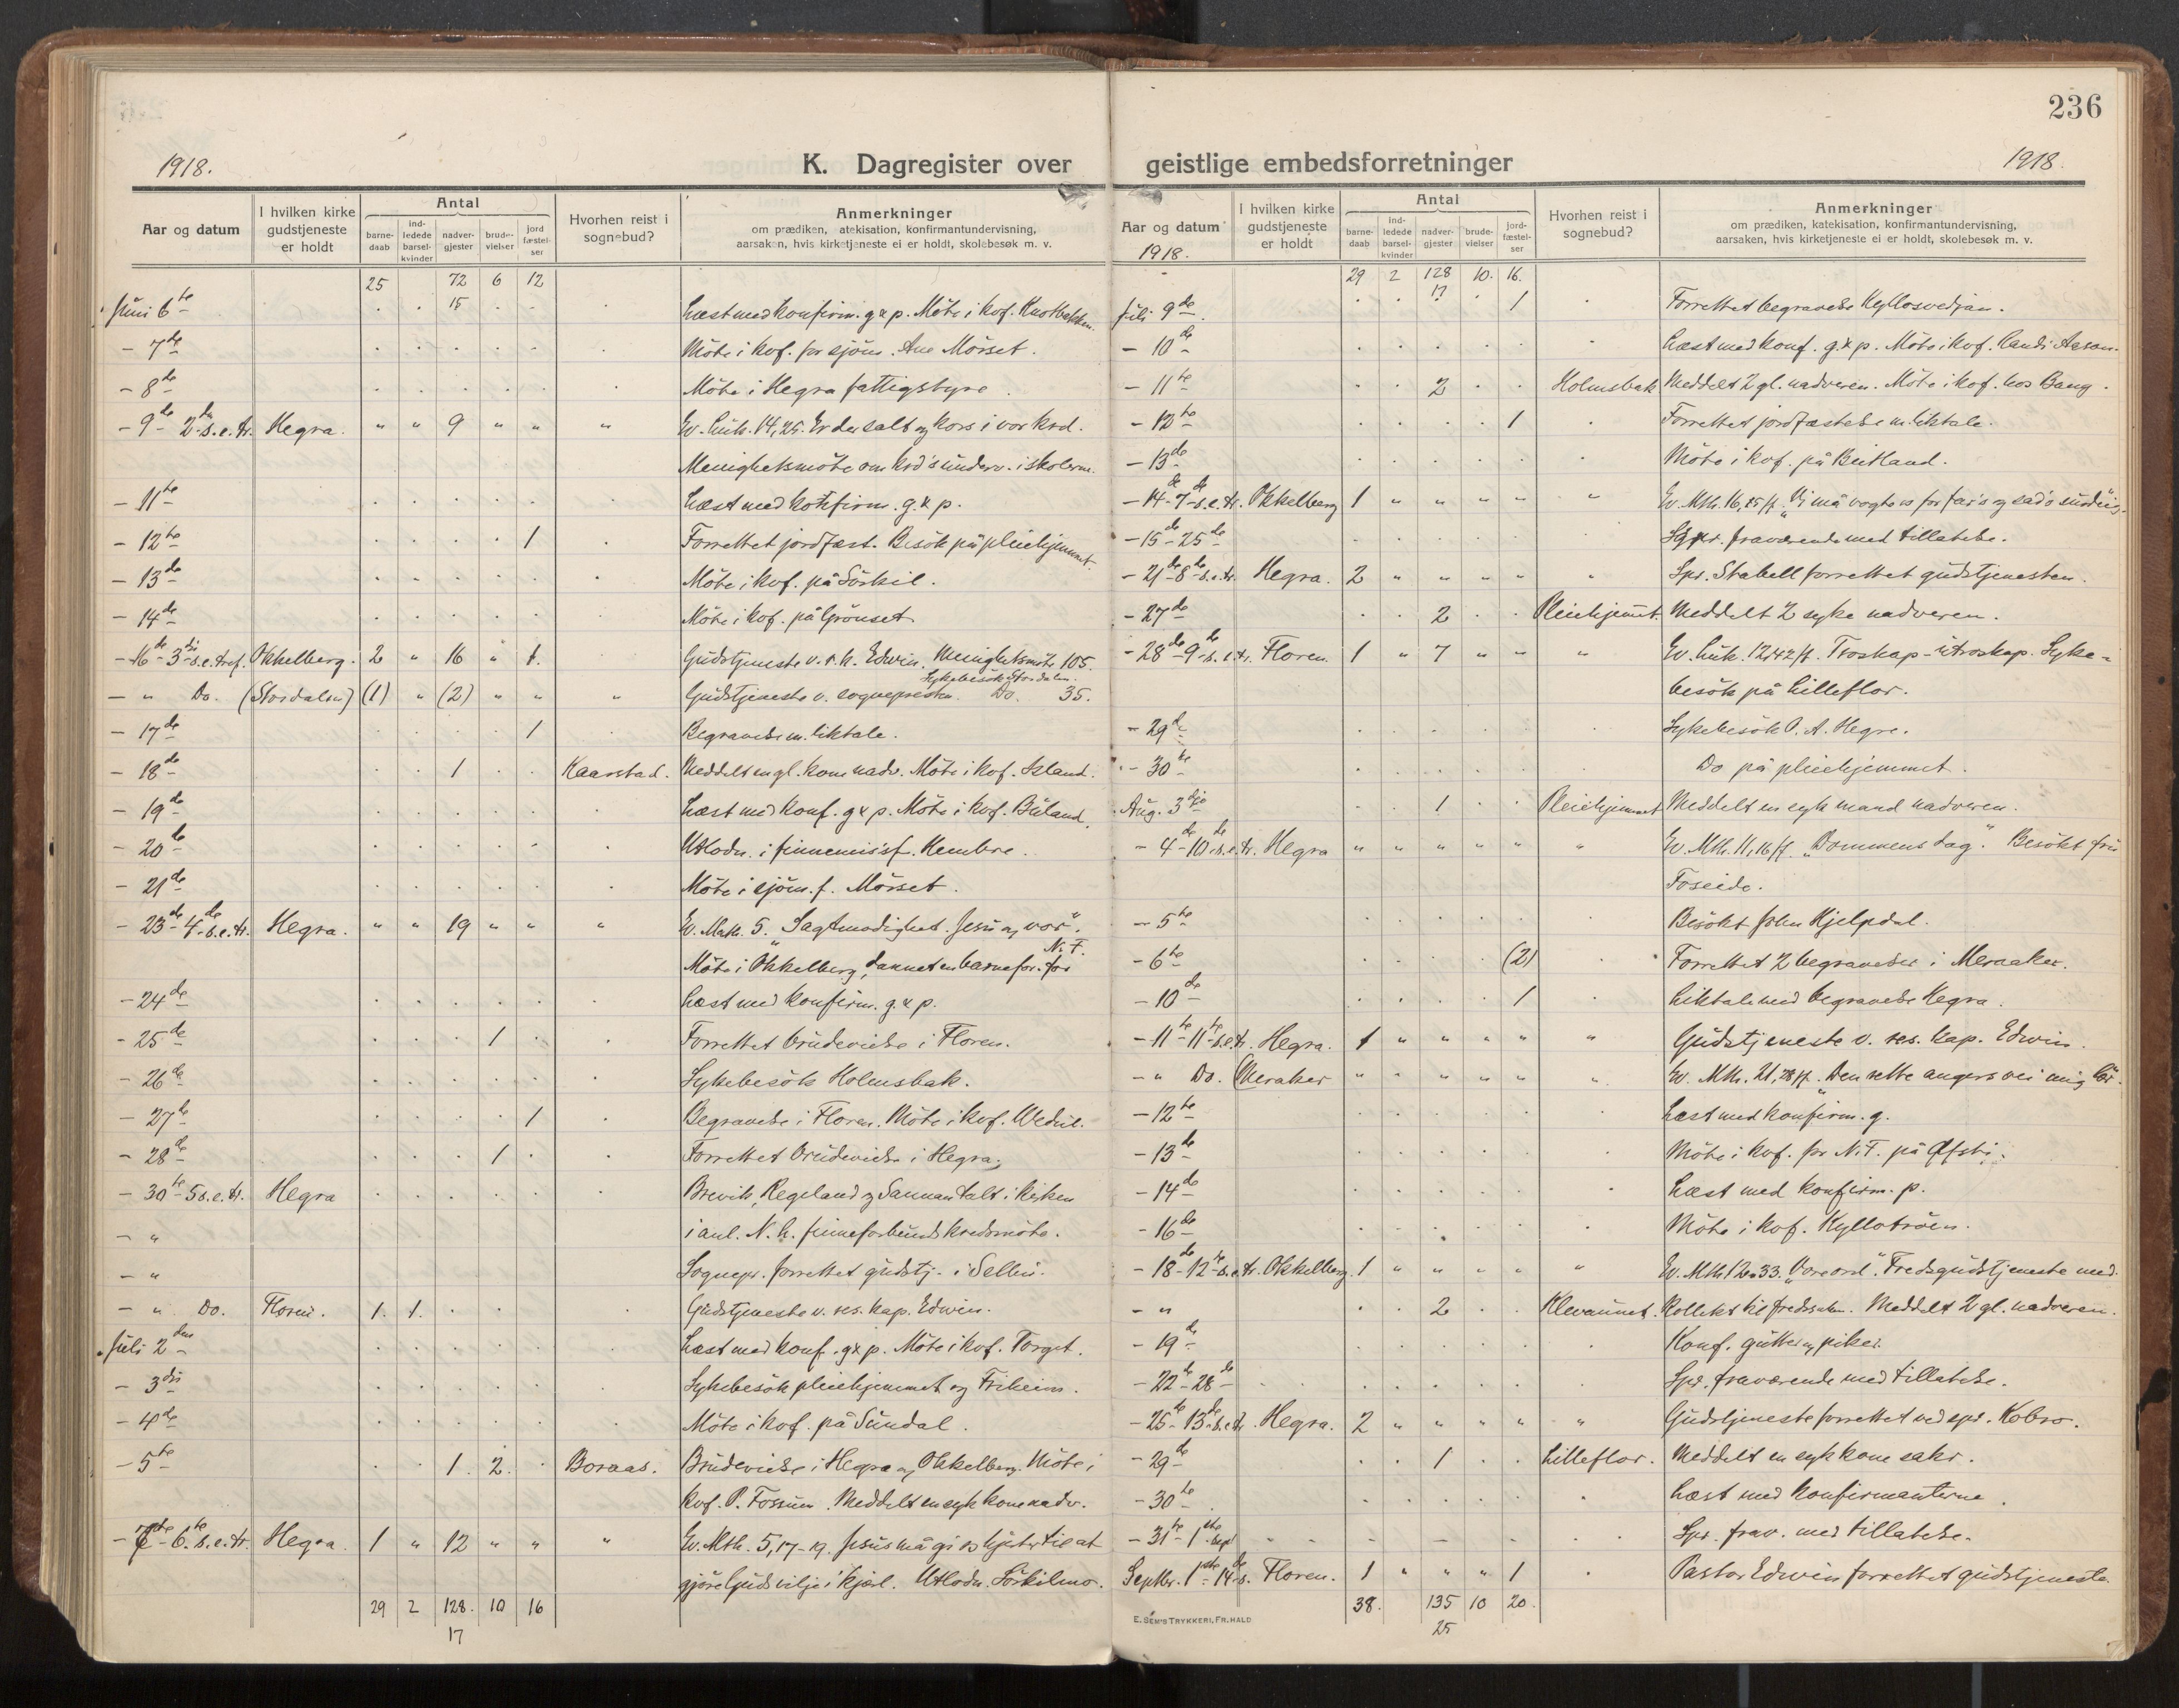 236
1918.
K. Dagregister over
geistlige embedsforretninger
1918.
Aar og datum
I hvilken kirke gudstjeneste er holdt
Antal
barnedaab
indledede barselkvinder
nadvergjester
brudevielser
jordfæstelser
Hvorhen reist i sognebud?
Anmerkninger
om prædiken, katekisation, konfirmantundervisning,
aarsaken, hvis kirketjeneste ei er holdt, skolebesøk m. v.
25 72 6 12
15
Juni 6te Læst med konfirm. g & p. Möte i kvf.
- 7de Möte i kvf. for sjöm. Ane Mörset.
- 8de Möte i Hegra fattigstyre
- 9de 2den s.e.tr. Hegra. " " 9 " " " Ev. Luk. 14,25. Er der salt og kors i vor krd.
Menighetsmöte om krd's underv. i skolerne.
- 11te Læst med konfirm. g & p.
- 12te 1 Forrettet jordfæst. Besök på pleiehjemmet.
- 13de Möte i kvf. på Sörkil.
- 14de Möte i kvf. på Grönset
- 16de 3die s.e.tref. Okkelberg. 2 " 16 " 1. Gudstjeneste v. r. k. Edwin. Menighetsmöte 105.
Sykebesök Stordalen.
- " Do. (Stordalen) (1) " (2) " " " Gudstjeneste v. sognepresten. Do. 35.
- 17de 1 Begravelse m. liktale.
- 18de 1 Kaarstad. Meddelt en gl. kone nadv. Möte i kvf.
- 19de Læst med konf. g & p. Möte i kvf. Buland.
- 20de Utlodn. i finnemis'sf. Kembre.
- 21de Möte i sjöm. f. Mörset.
- 23de 4de s.e.tr. Hegra. " " 19 " " " Ev. Math. 5. "Sagtmodighet. Jesu og vor".
Möte i Okkelberg, dannet en barnefor. for N.F.
- 24de Læst med konfirm. g & p.
- 25de 1 Forrettet brudevielse i Floren.
- 26de Sykebesök Holmsbak.
- 27de 1 Begravelse i Floren. Möte i kvf.
- 28de 1 Forrettet brudevielse i Hegra,
- 30te 5 s.e.tr. Hegra Brevik, Regeland og Sannan talt i kirken
- " i anl. N. h. finneforbunds kredsmöte.
- " Sognepr. forrettet gudstj. i Selbu.
- " Do. Floren. 1. 1. Gudstjeneste v. res. kap. Edwin.
Juli 2den Læst med konf. g & p. Möte i kvf. Torget.
- 3die Sykebesök pleiehjemmet og Friheim.
- 4de Möte i kvf. på Sundal.
- 5te 1. 2. Boraas. Brudevielse i Hegra og Okkelberg. Möte i
kvf. P. Fossum. Meddelt en syk kone nadv.
- 7de 6te s.e.tr. Hegra. 1 " 12 " " " Ev. Mth. 5,17-19. Jesus må gi os hjerte til at
gjöre Guds vilje i kjærl. Utlodn. Sörkilmo.
29 2 128. 10 16
17
Aar og datum
1918.
I hvilken kirke gudstjeneste er holdt
Antal
barnedaab
indledede barselkvinder
nadvergjester
brudevielser
jordfæstelser
Hvorhen reist i sognebud?
Anmerkninger
om prædiken, katekisation, konfirmantundervisning,
aarsaken, hvis kirketjeneste ei er holdt, skolebesøk m. v.
29 2 128 10. 16.
17
Juli 9de. 1 Forrettet begravelse
- 10de Læst med konf. g & p. Möte i kvf.
- 11te 2 Holmsbak Meddelt 2 gl. nadveren. Möte i kvf. hos Bang.
- 12te 1 Forrettet jordfæstelse m. liktale.
- 13de Möte i kvf. på
- 14de 7de s.e.tr. Okkelberg 1 " " " " " Ev. Mth. 16, "Vi må vogte os for
- 15de 25de Sgpr. fraværende med tillatelse.
- 21de 8de s.e.tr. Hegra. 2 " " " " " Spr. Stabell forrettet gudstjenesten.
- 27de 2 Pleiehjemmet. Meddelt 2 syke nadveren.
- 28de 9de s.e.tr. Floren. 1 " 7 " " " Ev. Luk. 12,42 ff. Troskap - utroskap. Syke-
besök på Lilleflor.
- 29de Sykebesök P. A. Hegre.
- 30te Do på pleiehjemmet.
Aug. 3dje 1 Pleiehjemmet Meddelt en syk mand nadveren.
- 4de 10de s.e.tr. Hegra " " " " " " Ev. Mth. 11,16 ff. "Dommens dag". Besökt fru
Foseide.
- 5te Besökt John Hjelpdal.
- 6te (2) Forrettet 2 begravelser i Meraaker.
- 10de 1 Liktale med begravelse Hegra.
- 11te 11te s.e.tr. Hegra. 1 " " " " " Gudstjeneste v. res. kap. Edwin.
- " Do. (Meraker " " " " " " Ev. Mth. 21,28 ff. "Den rette angers vei mig lær".
- 12te Læst med konfirm. g.
- 13de Möte i kvf. for N.F. på Øfsti.
- 14de Læst med konfirm. p.
- 16de Möte i kvf. Kyllotröen.
- 18de 12te s.e.tr. Okkelberg. 1 " " " " " Ev. Mth. 12. 33. "Vore ord". Fredsgudstjeneste med
- " 2 Klevaunet. Kollekt til Meddelt 2 gl. nadveren.
- 19de Konf. gutter og piker.
- 22de 28de Spr. fraværende med tillatelse.
- 25de 13de s.e.tr. Hegra. 2 " " " " " Gudstjeneste forrettet ved spr. Kobro.
- 29de 1 Lilleflor. Meddelt en syk kone sakr.
- 30te Læst med konfirmanterne.
- 31te - 1ste Sept Spr. frav. med tillatelse.
Septbr. 1ste 14de s. Floren. 1 " " " 1 Pastor Edwin forrettet gudstjeneste.
38. 135 10 20.
25
E. SEM'S TRYKKERI, FR.HALD